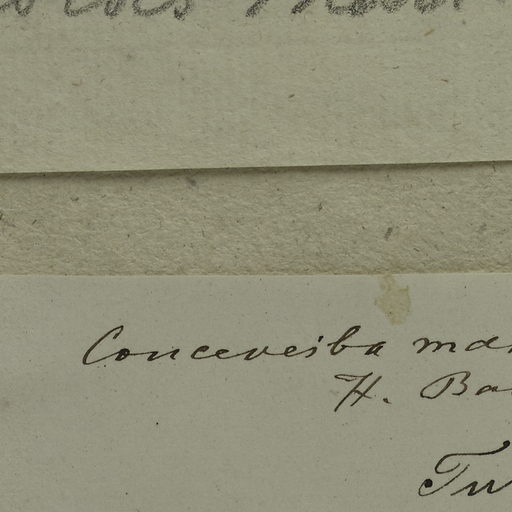 Conceveiba ma
H. Ba
Tu